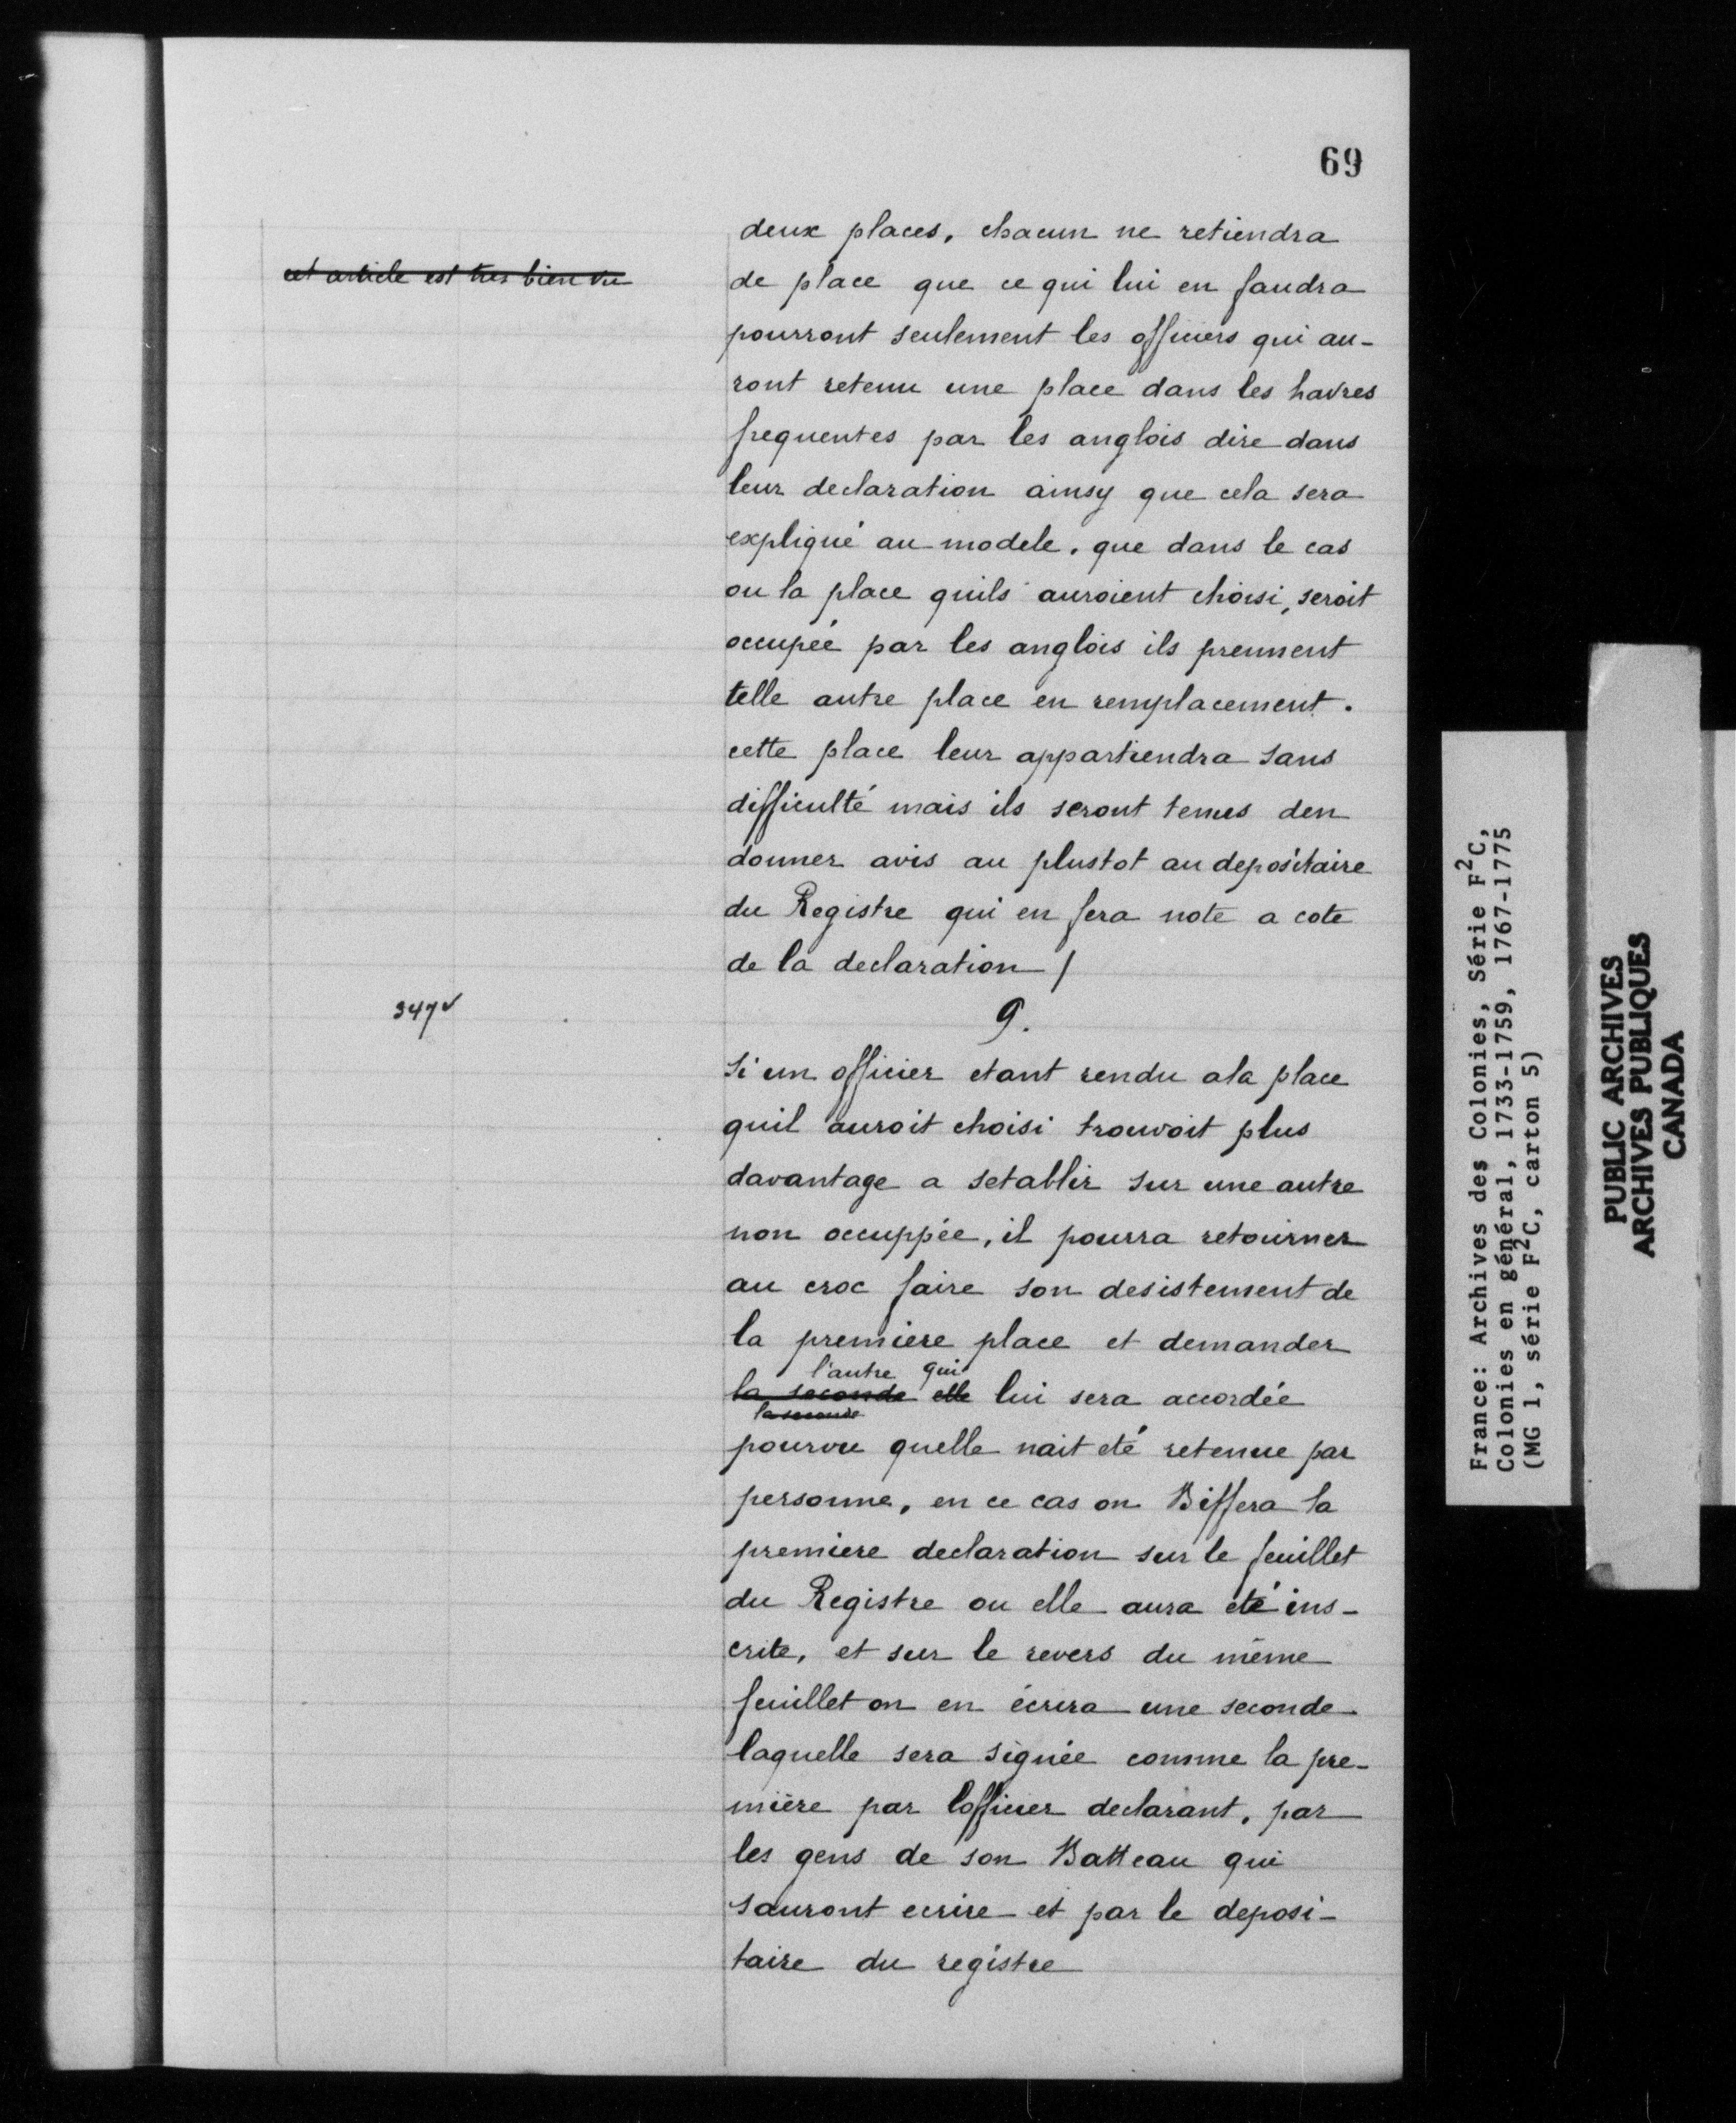 69
deux places, chacun ne retiendra
cet article est tres bien vu
de place que ce qui lui en faudra
pourront seulement les officiers qui au-
ront retenu une place dans les havres
frequentes par les anglois dire dans
leur declaration ainsy que cela sera
expliqué au modele, que dans le cas
ou la place quils auroient choisi, seroit
occupée par les anglois ils prennent
telle autre place en remplacement.
cette place leur appartiendra sans
difficulté mais ils seront tenus den
donner avis au plustot au depositaire
du Registre qui en fera note a cote
de la declaration /
347v
9.
Si un officier etant rendu ala place
quil auroit choisi trouvoit plus
davantage a setablir sur une autre
non occuppée, il pourra retourner
au croc faire son desistement de
la premiere place et demander
l'autre qui
la seconde elle lui sera accordée
la seconde
pourvu quelle nait eté retenue par
personne, en ce cas on Biffera la
premiere declaration sur le feuillet
du Registre ou elle aura eté ins-
crite, et sur le revers du même
feuillet on en écrira une seconde
laquelle sera signée comme la pre-
mière par lofficier declarant, par
les gens de son Batteau qui
sauront ecrire et par le deposi-
taire du registre
France: Archives des Colonies, Série F²C,
Colonies en général, 1733-1759, 1767-1775
(MG 1, série F²C, carton 5)
PUBLIC ARCHIVES
ARCHIVES PUBLIQUES
CANADA